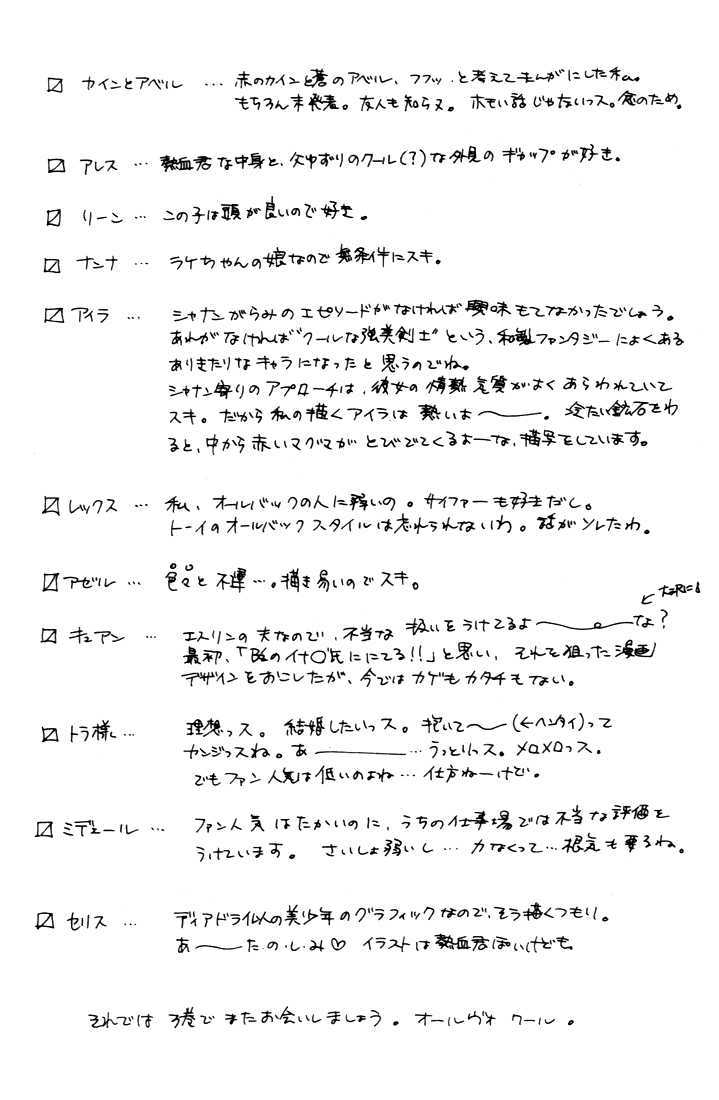 ☑ カインとアベル … 赤のカインと蒼のアベル、フフッ と考えてまんがにした私。
もちろん未発表。友人も知らヌ。ホモい話じゃないっス。念のため。
☑ アレス … 熱血君な中身と、父ゆずりのクール(?)な外見のギャップが好き。
☑ リーン … この子は頭が良いので好き。
☑ ナンナ … ラケちゃんの娘なので無条件にスキ。
☑ アイラ … シャナンがらみのエピソードがなければ興味もてなかったでしょう。
あれがなければ"クールな強美剣士"という、和製ファンタジーによくある
ありきたりなキャラになったと思うのでね。
シャナン寄りのアプローチは、彼女の情熱気質がよくあらわれていて
スキ。だから私の描くアイラは熱いよ〜。冷たい鉱石をわ
ると、中から赤いマグマがとびでてくるよーな、描写をしています。
☑ レックス … 私、オールバックの人に弱いの。サイファーも好きだし。
トーイのオールバックスタイルは忘れられないわ。話がソレたわ。
☑ アゼル … 色々と不運…。描き易いのでスキ。
☑ キュアン … エスリンの夫なので、不当な扱いをうけてるよ〜な?
最初、「BZのイナ○氏ににてる!!」と思い、それを狙った漫画
デザインをおこしたが、今ではカゲもカタチもない。
☑ トラ様 … 理想っス。結婚したいっス。抱いて〜(←ヘンタイ)って
カンジっスね。あ――…うっとりっス。メロメロっス。
でもファン人気は低いのよね…仕方ねーけど。
☑ ミデェール … ファン人気はたかいのに、うちの仕事場では不当な評価を
うけています。さいしょ弱いし…力なくって…根気も要るね。
☑ セリス … ディアドラ似の美少年のグラフィックなので、そう描くつもり。
あ〜た・の・し・み♡ イラストは熱血君ぽいけども。
それでは 3巻で またお会いしましょう。オールヴォ クール。